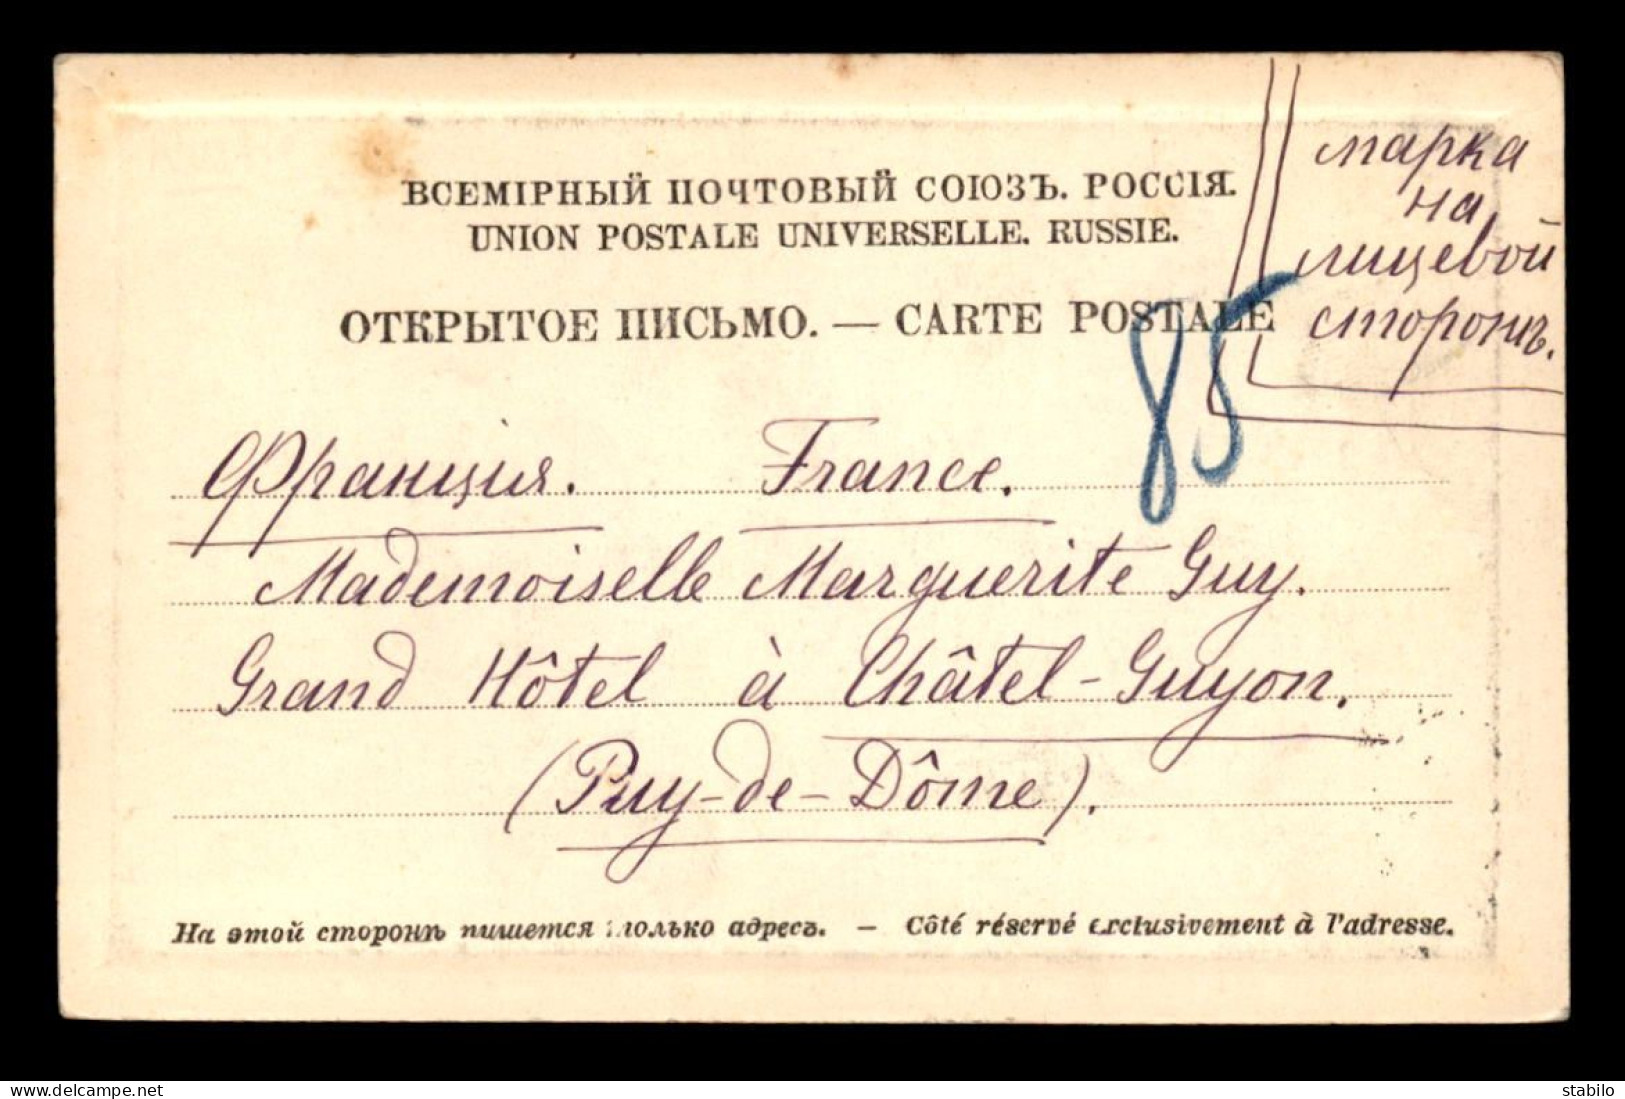 ВСЕМІРНЫЙ ПОЧТОВЫЙ СОЮЗЪ. РОССІЯ.
UNION POSTALE UNIVERSELLE. RUSSIE.
ОТКРЫТОЕ ПИСЬМО. — CARTE POSTALE
марка
на
лицевой
сторонѣ.
85
Франція. France.
Mademoiselle Marguerite Guy.
Grand Hôtel à Châtel-Guyon.
(Puy-de-Dôme).
На этой сторонѣ пишется только адресъ. — Côté réservé exclusivement à l'adresse.
delcampe.net
stabilo